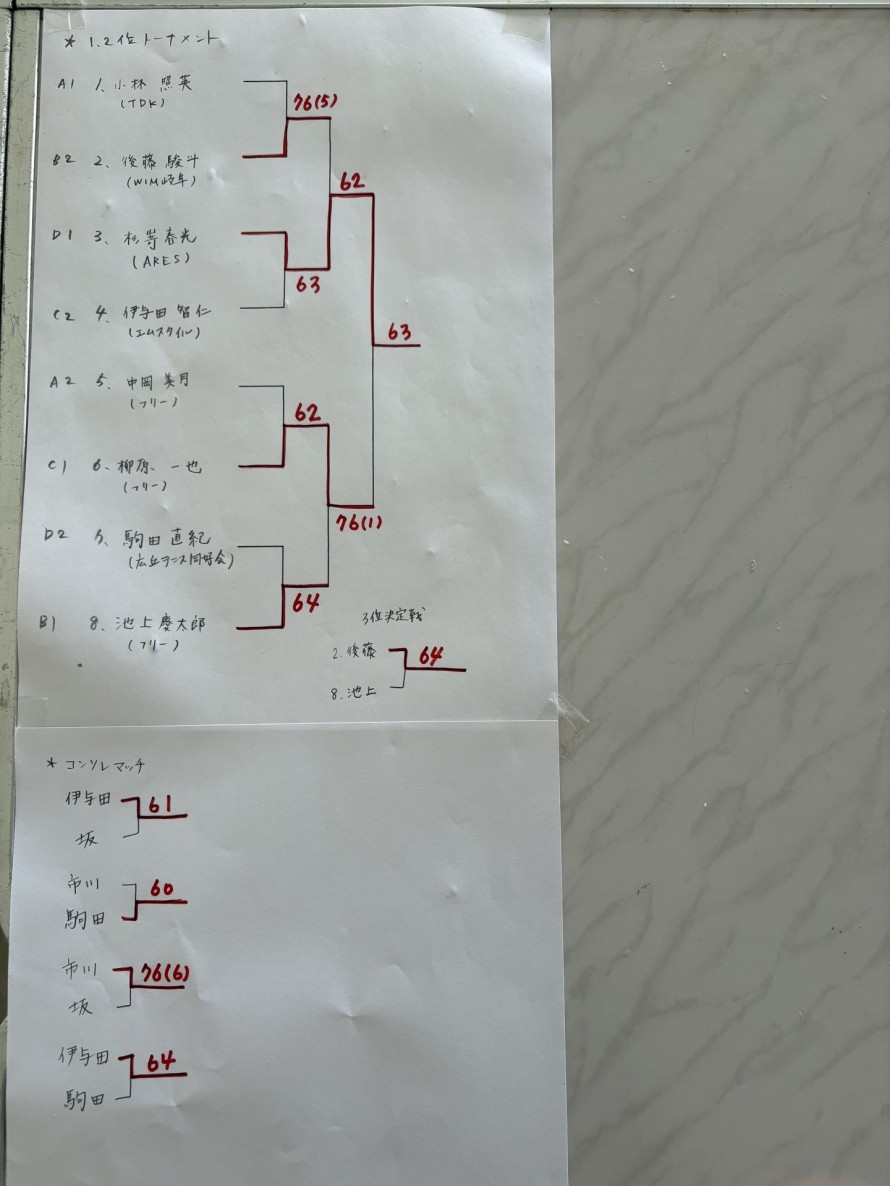 * 1.2位トーナメント
A1 1、小林 照英
(TDK)
76(5)
B2 2、後藤 駿斗
(WIM岐阜)
62
D1 3、杉嵜春光
(ARES)
63
C2 4、伊与田 智仁
(エムスタイル)
63
A2 5、中岡 美月
(フリー)
62
C1 6、柳原、一也
(フリー)
76(1)
D2 7、駒田 直紀
(広丘テニス同好会)
64
B1 8、池上 慶太郎
(フリー)
3位決定戦
2.後藤
64
8.池上
* コンソレマッチ
伊与田
61
坂
市川
60
駒田
市川
76(6)
坂
伊与田
64
駒田